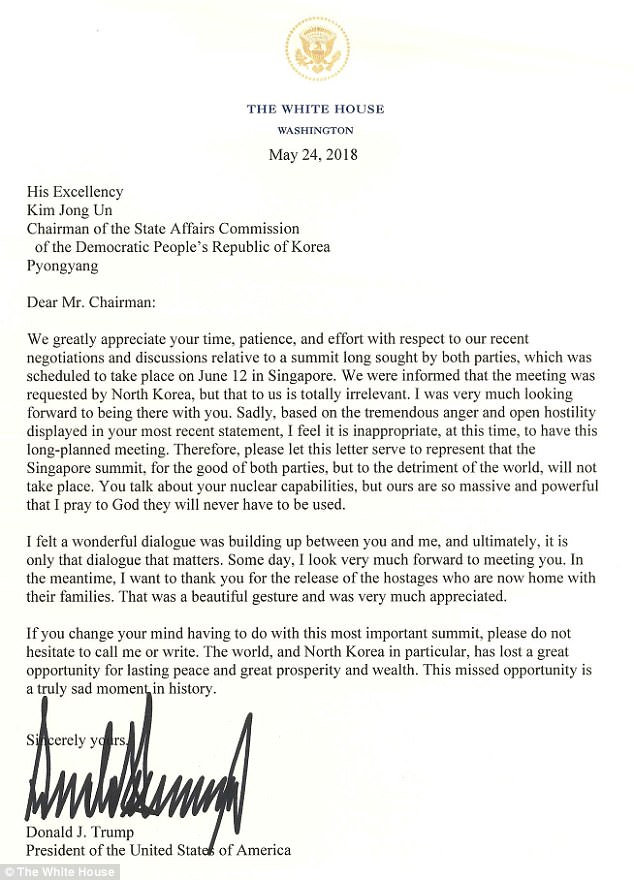 THE WHITE HOUSE
WASHINGTON
May 24, 2018
His Excellency
Kim Jong Un
Chairman of the State Affairs Commission
of the Democratic People's Republic of Korea
Pyongyang
Dear Mr. Chairman:
We greatly appreciate your time, patience, and effort with respect to our recent
negotiations and discussions relative to a summit long sought by both parties, which was
scheduled to take place on June 12 in Singapore. We were informed that the meeting was
requested by North Korea, but that to us is totally irrelevant. I was very much looking
forward to being there with you. Sadly, based on the tremendous anger and open hostility
displayed in your most recent statement, I feel it is inappropriate, at this time, to have this
long-planned meeting. Therefore, please let this letter serve to represent that the
Singapore summit, for the good of both parties, but to the detriment of the world, will not
take place. You talk about your nuclear capabilities, but ours are so massive and powerful
that I pray to God they will never have to be used.
I felt a wonderful dialogue was building up between you and me, and ultimately, it is
only that dialogue that matters. Some day, I look very much forward to meeting you. In
the meantime, I want to thank you for the release of the hostages who are now home with
their families. That was a beautiful gesture and was very much appreciated.
If you change your mind having to do with this most important summit, please do not
hesitate to call me or write. The world, and North Korea in particular, has lost a great
opportunity for lasting peace and great prosperity and wealth. This missed opportunity is
a truly sad moment in history.
Sincerely yours,
Donald J. Trump
President of the United States of America
© The White House